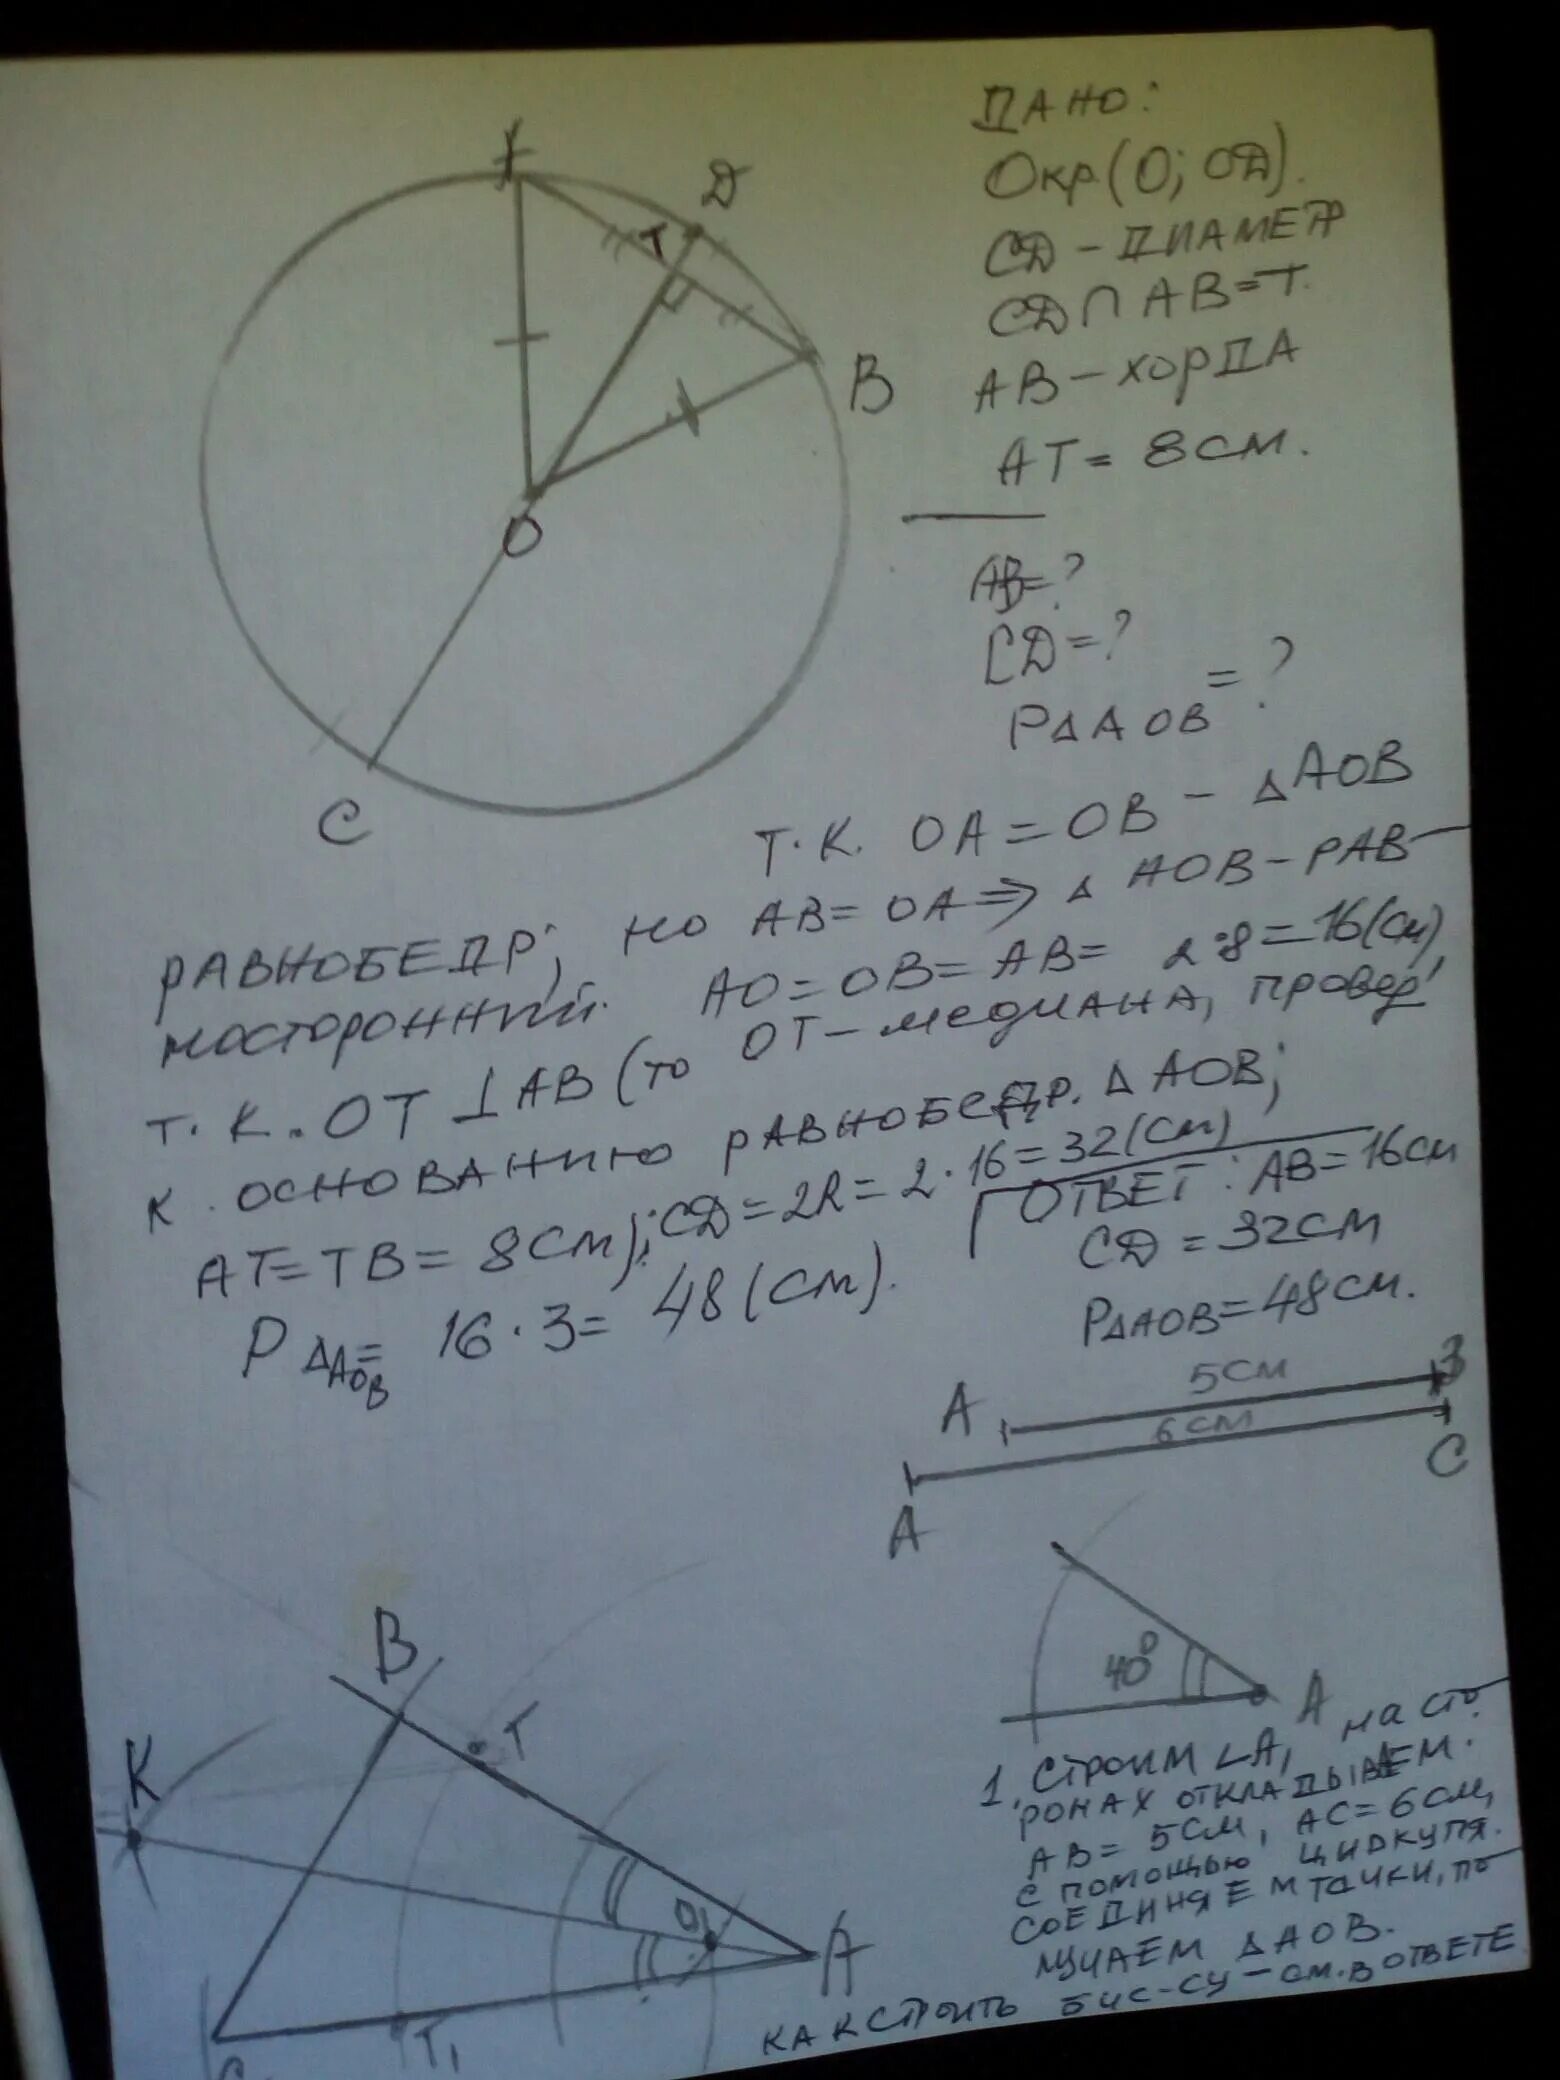 ДАНО:
Окр(О; ОD).
CD – ДИАМЕТР
CD ∩ AB = T.
AB – ХОРДА
AT = 8 СМ.
AB = ?
CD = ?
P△AOB = ?
D
T
B
O
C
Т.К. OA = OB – △AOB
РАВНОБЕДР; НО AB = OA ⇒ △ AOB – РАВ–
НОСТОРОННИЙ. AO = OB = AB = 2·8 = 16(СМ),
Т.К. OT ⊥ AB (то OT – МЕДИАНА, ПРОВЕД.
К ОСНОВАНИЮ РАВНОБЕДР. △ AOB;
AT = TB = 8 СМ); CD = 2R = 2·16 = 32(СМ)
P△AOB = 16·3 = 48(СМ).
ОТВЕТ: AB = 16 СМ
CD = 32 СМ
P△AOB = 48 СМ.
A 5 СМ B
6 СМ
A C
40°
A
B
T
K
O1
A
T1
C
1. СТРОИМ ∠A, НА СТО–
РОНАХ ОТКЛАДЫВАЕМ.
AB = 5 СМ, AC = 6 СМ,
С ПОМОЩЬЮ ЦИРКУЛЯ.
СОЕДИНЯЕМ ТОЧКИ, ПО–
ЛУЧАЕМ △ AOB.
КАК СТРОИТЬ БИС-СУ – СМ. В ОТВЕТЕ